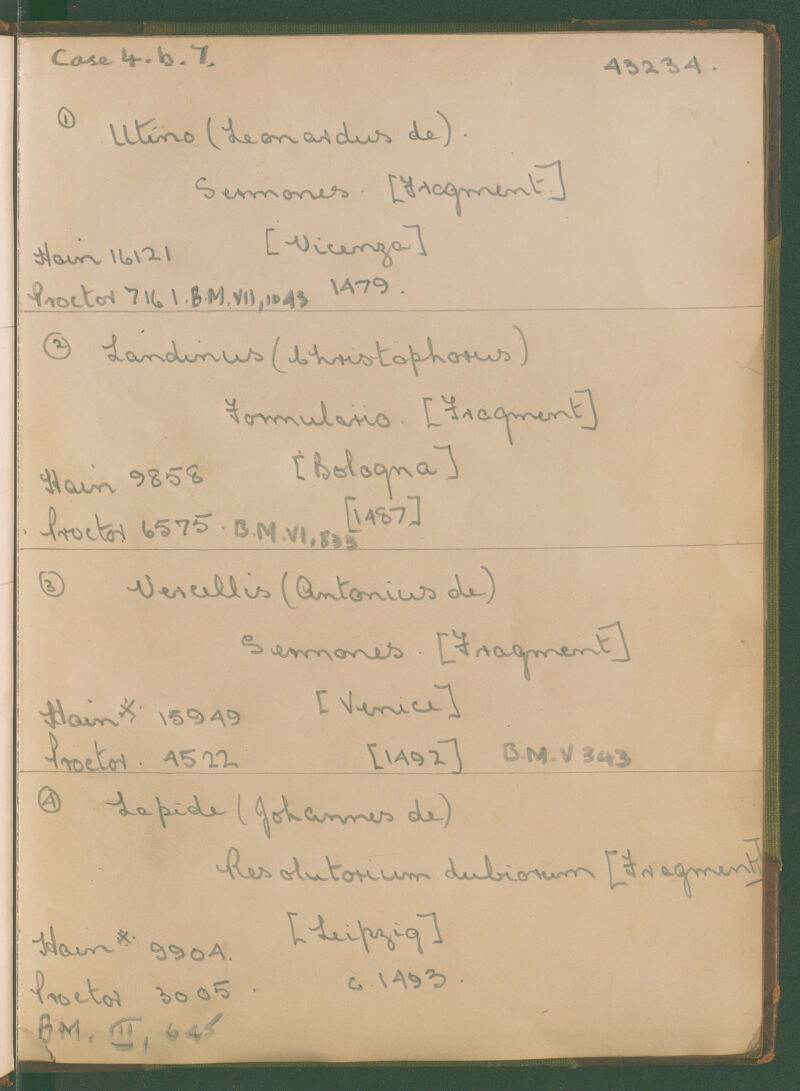 Case 4.b.7.
43234.
① Utino (Leonardus de).
Sermones. [Fragment.]
[Vicenza]
Hain 16121
1479.
Proctor 7161. B.M. VII, 1043
② Landinus (Christophorus)
Formulario. [Fragment]
[Bologna]
Hain 9858
[1487]
Proctor 6575. B.M. VI, 833
③ Vercellis (Antonius de)
Sermones. [Fragment]
[Venice]
Hain* 15949
Proctor. 4522 [1492] B.M. V 343
④ Lapide (Johannes de)
Resolutorium dubiorum [Fragment]
[Leipzig]
Hain* 9904.
c. 1493.
Proctor 3005.
BM. III, 645